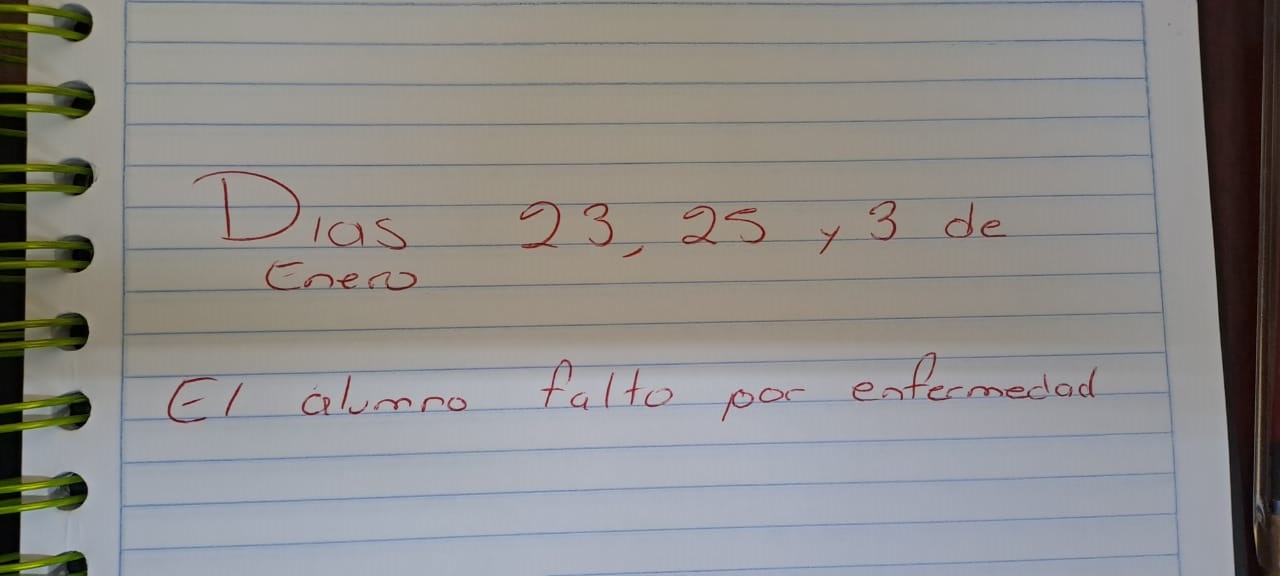 Dias 23, 25 y 3 de
Enero
El alumno falto por enfermedad